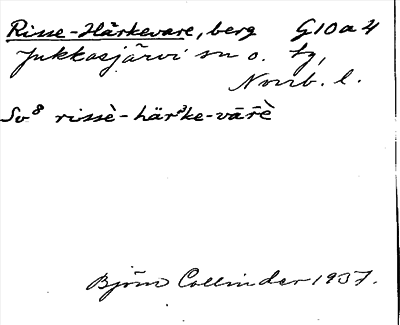 Risse-Härkevare, berg G10a4
Jukkasjärvi sn o. tg,
Norrb. l.
So⁸ rissè-här³ke-vār̄è
Björn Collinder 1937.